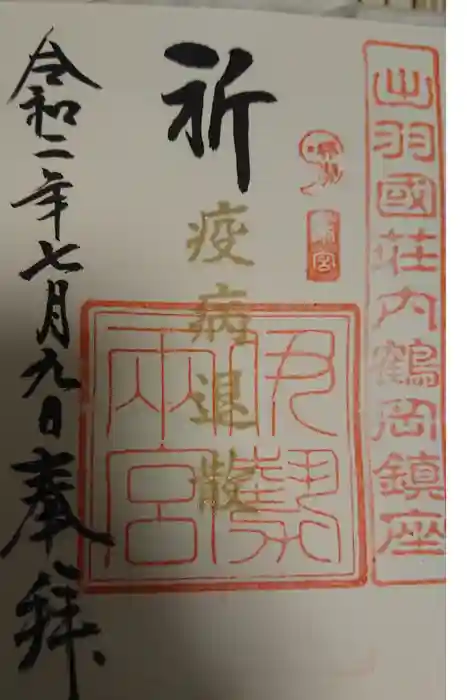 出羽國荘内鶴岡鎮座
祈
疫病退散
伊勢
両宮
令和二年七月九日奉拝